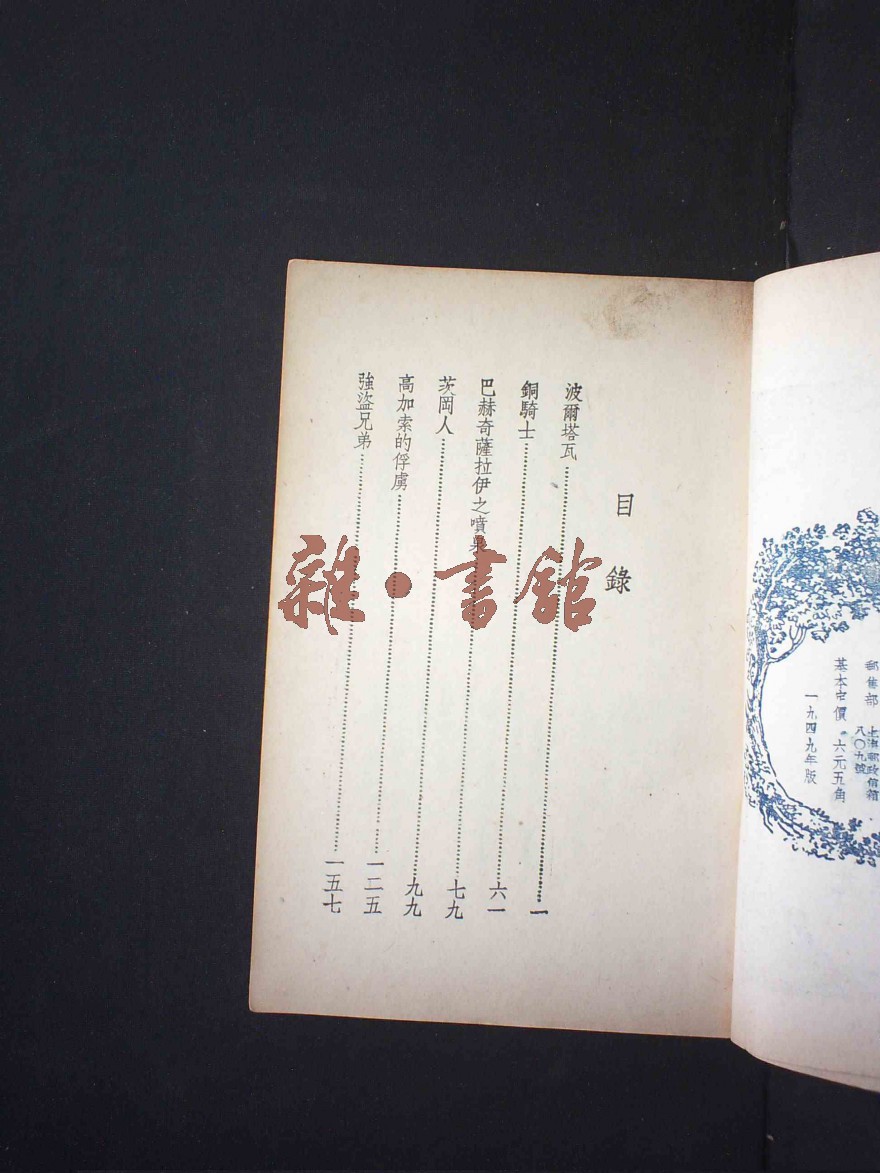 郵售部 上海郵政信箱
八〇九號
基本定價 六元五角
一九四九年版
目錄
波爾塔瓦……一
銅騎士……六一
巴赫奇薩拉伊之噴泉……七九
茨岡人……九九
高加索的俘虜……一二五
強盜兄弟……一五七
雜·書館